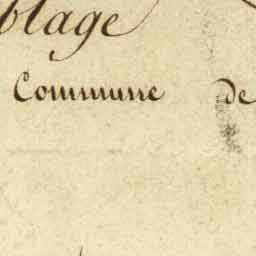 blage
Commune de